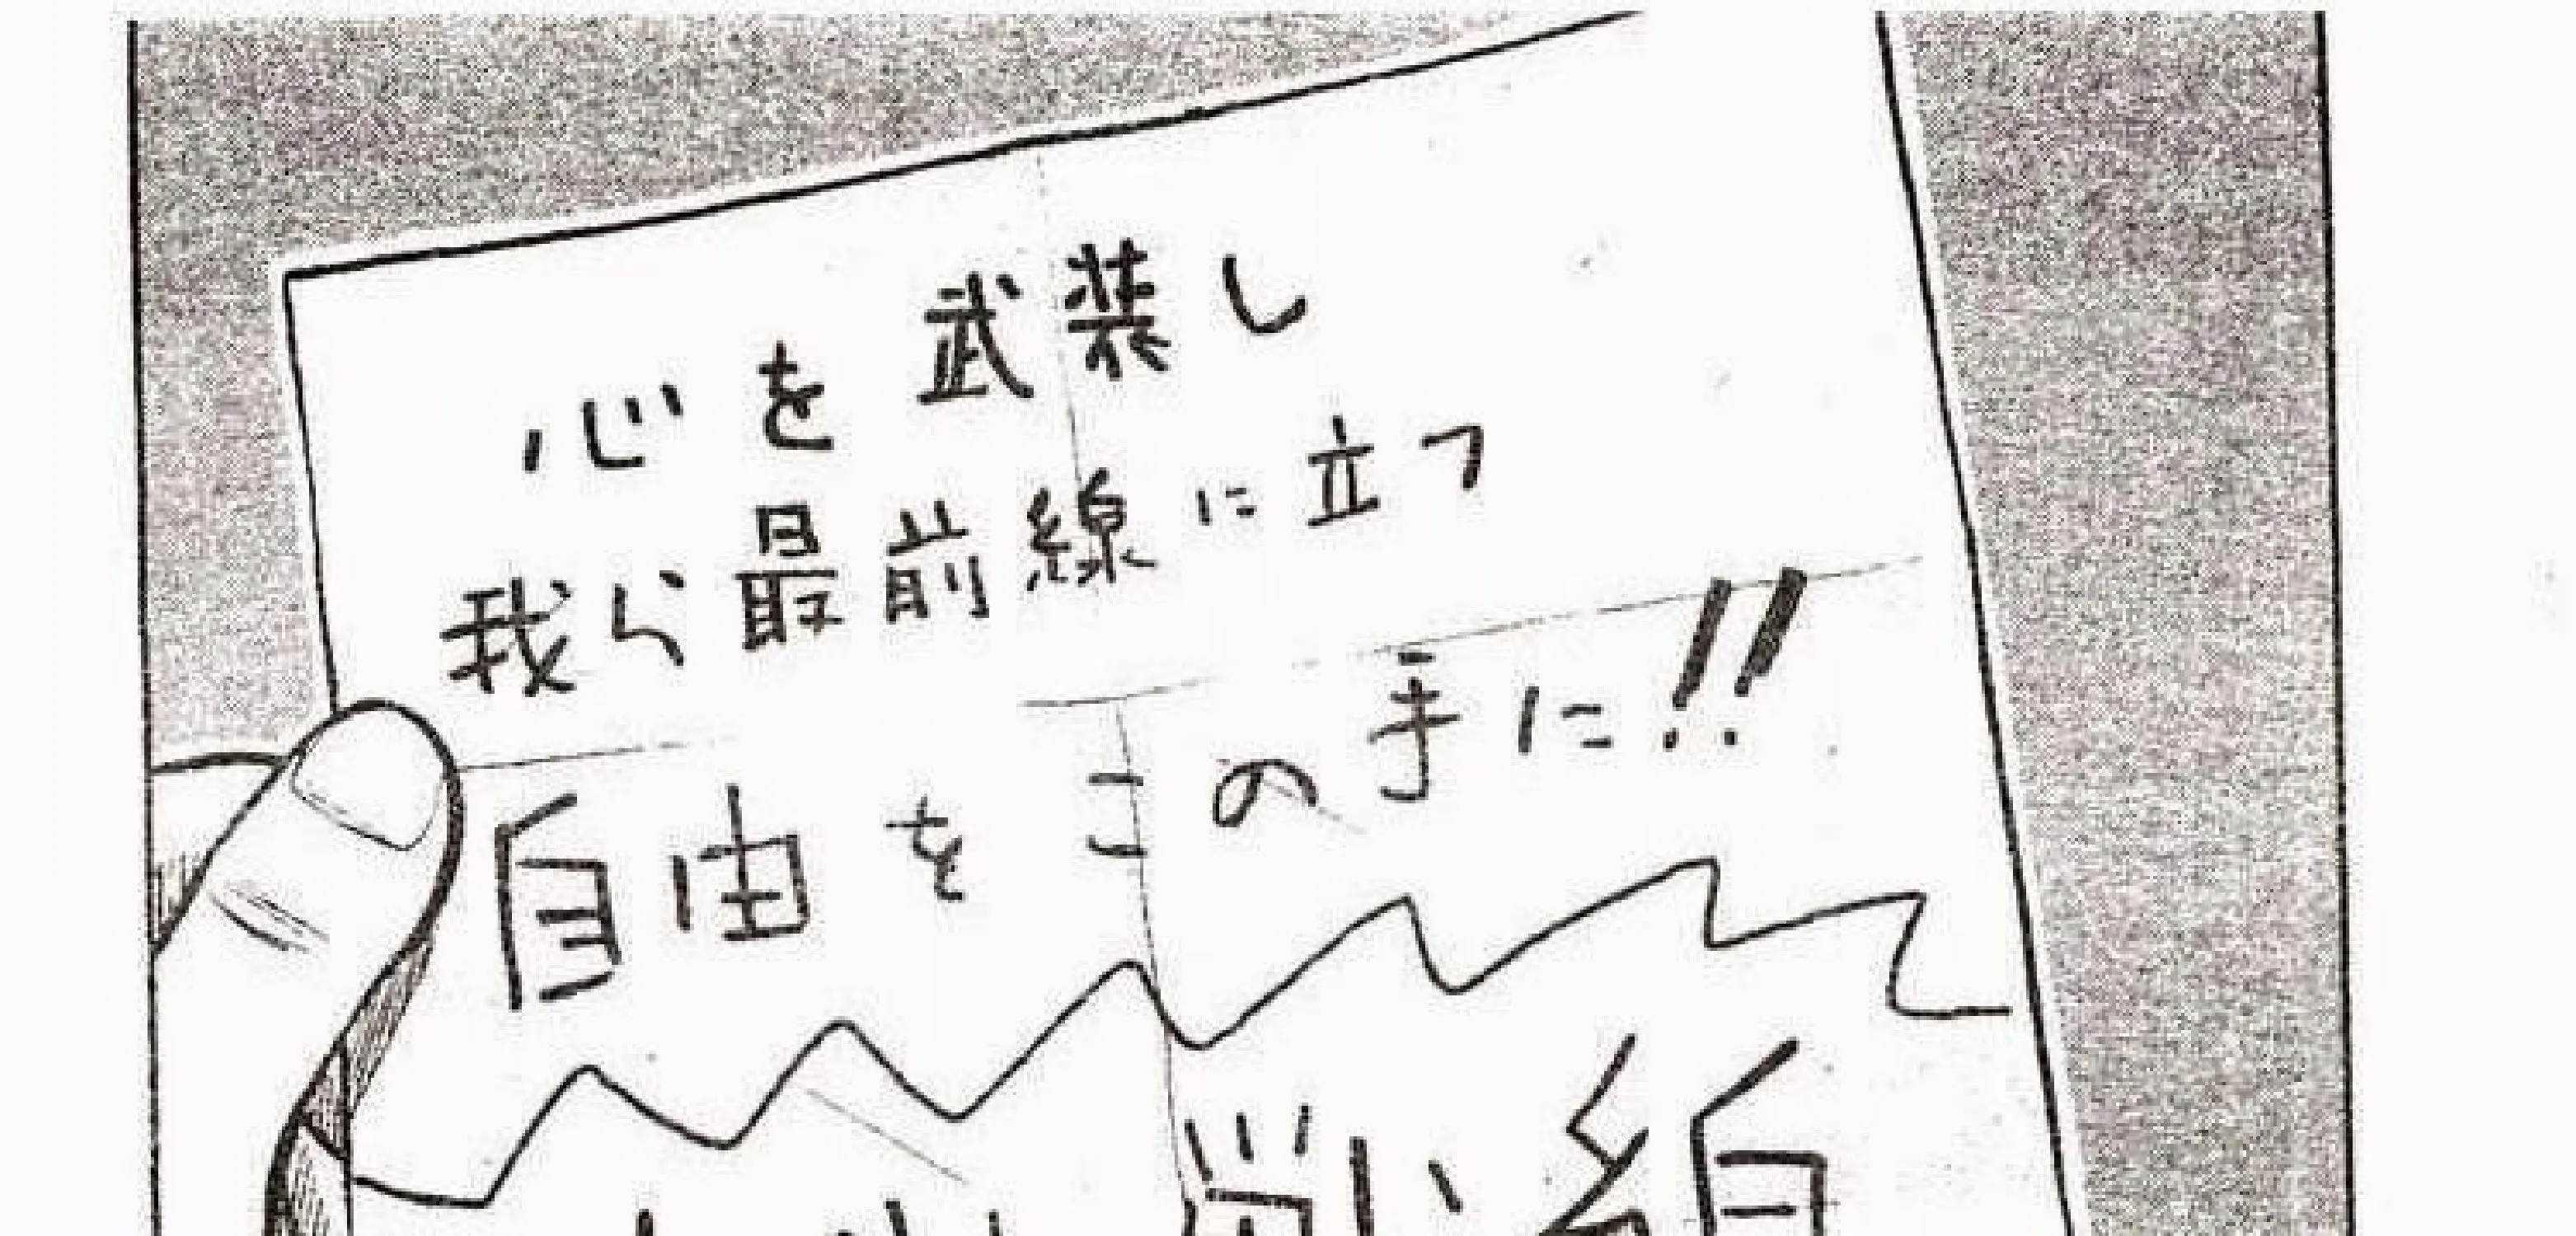 心を武装し
我ら最前線に立つ
自由をこの手に!!